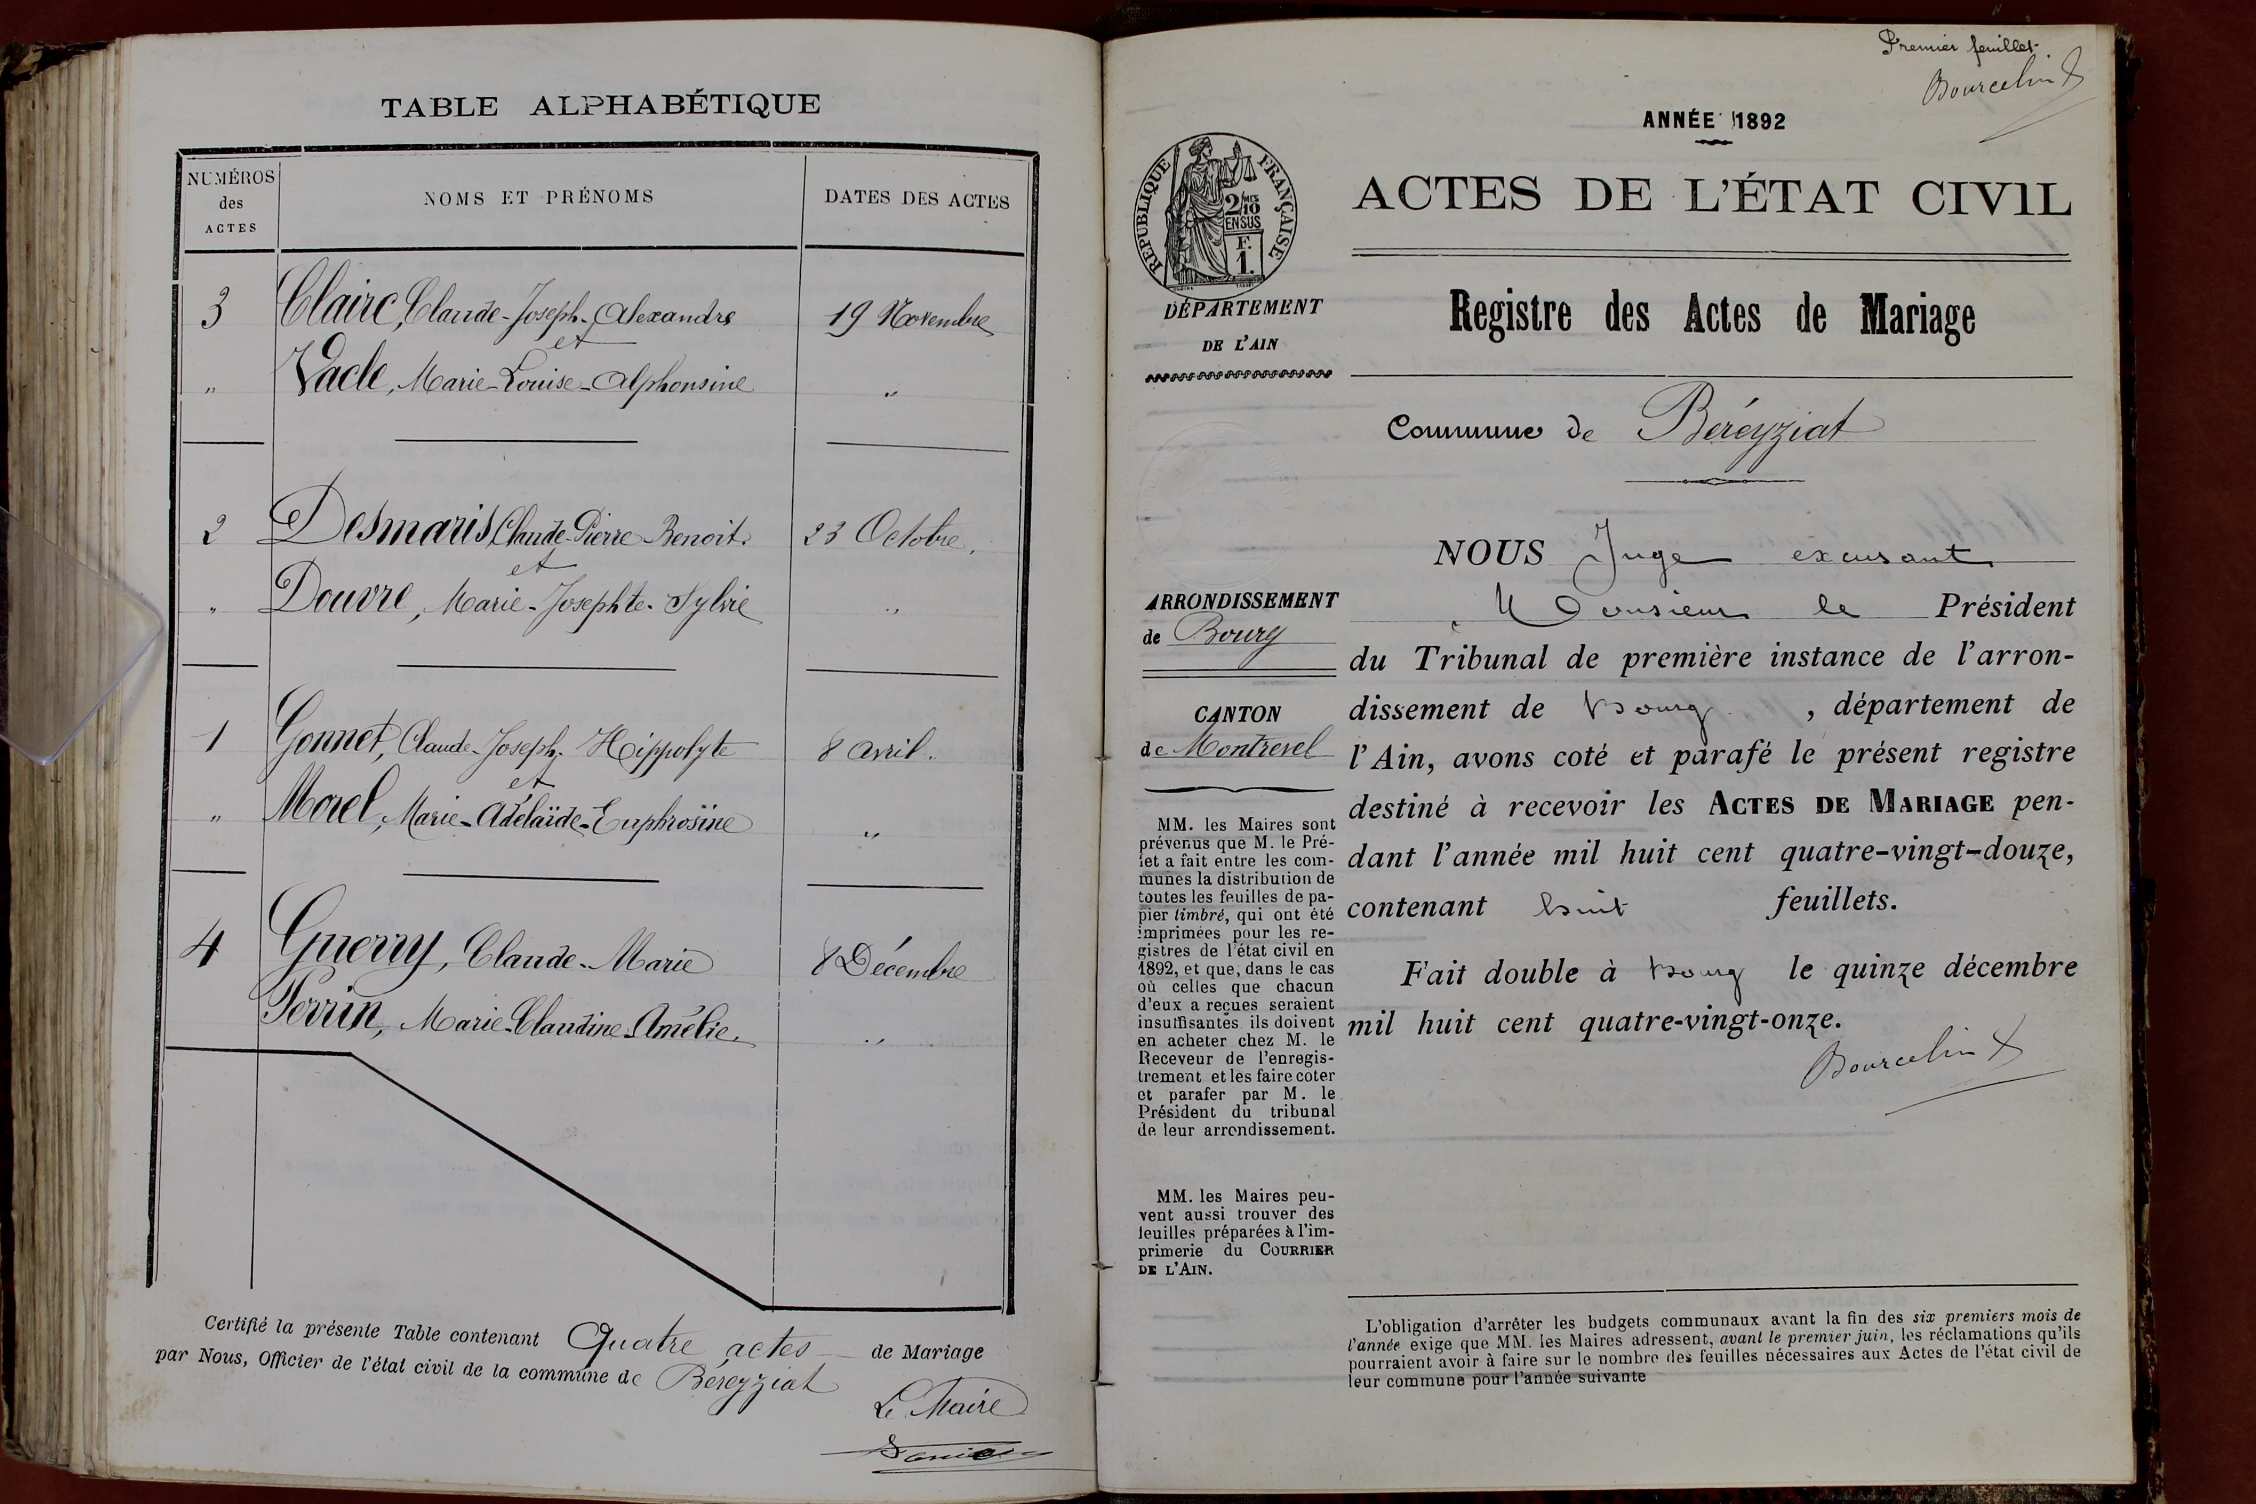 TABLE ALPHABÉTIQUE
NUMÉROS
des
ACTES
NOMS ET PRÉNOMS
DATES DES ACTES
3 Clairc, Claude-Joseph-Alexandre 19 Novembre
et
" Vacle, Marie-Louise-Alphonsine "
2 Desmaris, Claude-Pierre-Benoit. 23 Octobre.
et
" Douvre, Marie-Josephte-Sylvie "
1 Gonnet, Claude-Joseph-Hippolyte 8 avril.
et
" Morel, Marie-Adélaïde-Euphrosine "
4 Guerry, Claude-Marie 8 Décembre
Perrin, Marie-Claudine-Amélie. "
Certifié la présente Table contenant Quatre actes de Mariage
par Nous, Officier de l'état civil de la commune de Béreyziat
Le Maire
Premier feuillet.
Bourcelin
ANNÉE 1892
ACTES DE L'ÉTAT CIVIL
RÉPUBLIQUE FRANÇAISE
2/10
EN SUS
F.
1.
DÉPARTEMENT
DE L'AIN
Registre des Actes de Mariage
Commune de Béreyziat
ARRONDISSEMENT
de Bourg
CANTON
de Montrevel
MM. les Maires sont
prévenus que M. le Pré-
fet a fait entre les com-
munes la distribution de
toutes les feuilles de pa-
pier timbré, qui ont été
imprimées pour les re-
gistres de l'état civil en
1892, et que, dans le cas
où celles que chacun
d'eux a reçues seraient
insuffisantes ils doivent
en acheter chez M. le
Receveur de l'enregis-
trement et les faire coter
et parafer par M. le
Président du tribunal
de leur arrondissement.
MM. les Maires peu-
vent aussi trouver des
feuilles préparées à l'im-
primerie du COURRIER
DE L'AIN.
NOUS Juge excusant
Monsieur le Président
du Tribunal de première instance de l'arron-
dissement de Bourg , département de
l'Ain, avons coté et parafé le présent registre
destiné à recevoir les ACTES DE MARIAGE pen-
dant l'année mil huit cent quatre-vingt-douze,
contenant huit feuillets.
Fait double à Bourg le quinze décembre
mil huit cent quatre-vingt-onze.
Bourcelin
L'obligation d'arrêter les budgets communaux avant la fin des six premiers mois de
l'année exige que MM. les Maires adressent, avant le premier juin, les réclamations qu'ils
pourraient avoir à faire sur le nombre des feuilles nécessaires aux Actes de l'état civil de
leur commune pour l'année suivante